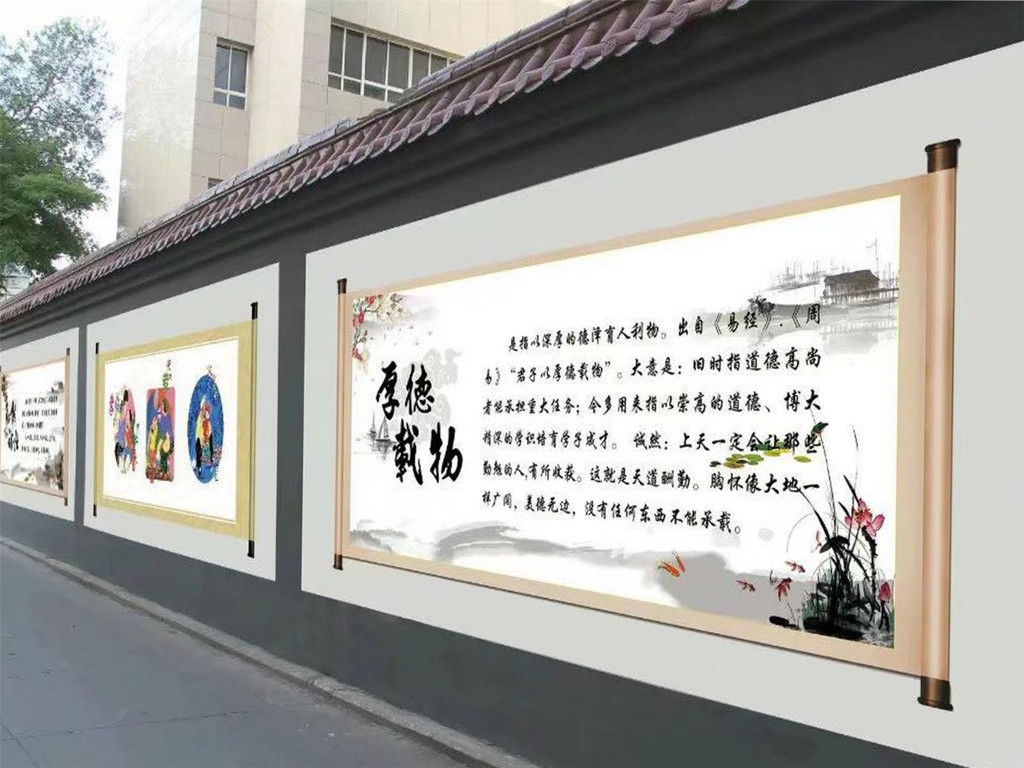 厚德
载物
是指以深厚的德泽育人利物。出自《易经》.《周
易》“君子以厚德载物”。大意是：旧时指道德高尚
者能承担重大任务；今多用来指以崇高的道德、博大
精深的学识培育学子成才。 诚然：上天一定会让那些
勤勉的人,有所收获。这就是天道酬勤。胸怀像大地一
样广阔，美德无边，没有任何东西不能承载。